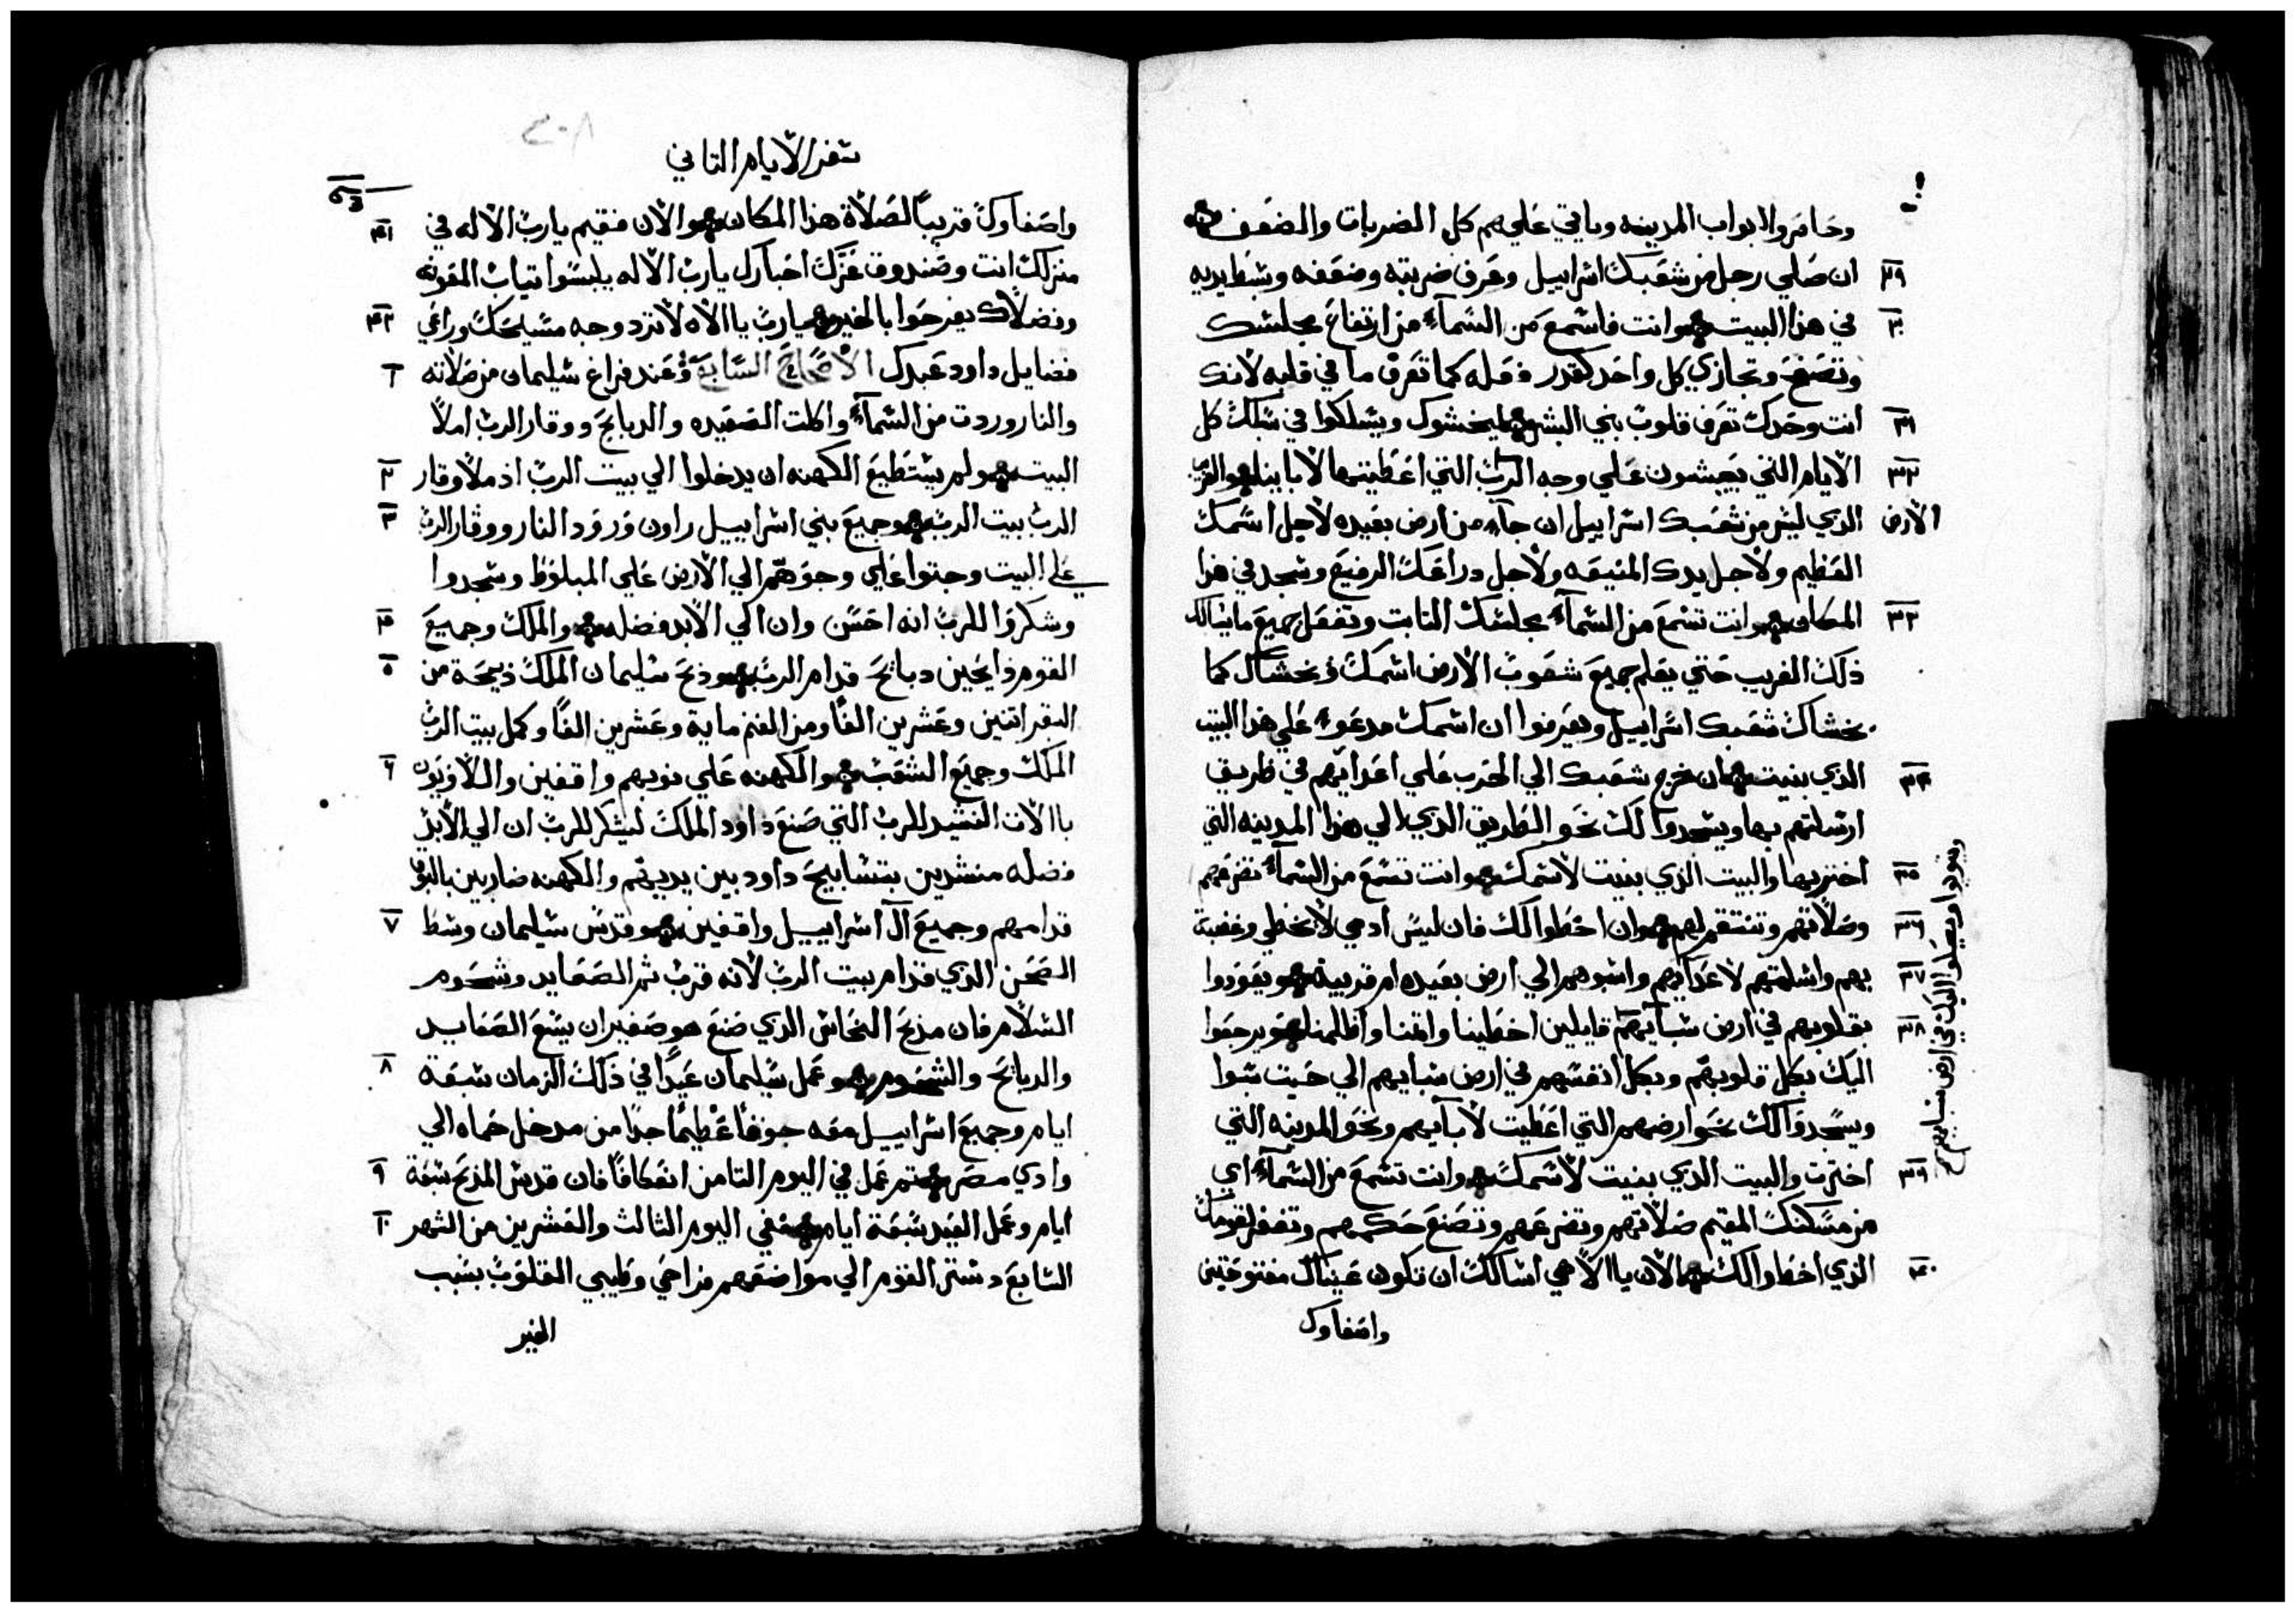 وحاصروا ابواب المدينه وياتي علي هم كل الضربات والضعف
٢٩ ان صلي رجل من شعبك اسراييل وعرف ضربته وضعفه وبسط يديه
٣٠ في هذا البيت وانت فاسمع من السمآء من ارتفاع مجلسك
وتصفح وتجازي كل واحد كقدر فعله كما تعرف ما في قلبه لانك
٣١ انت وحدك تعرف قلوب بني البشر ليخشوك ويسلكوا في سبلك كل
٣٢ الايام التي يعيشون علي وجه التي اعطيتها لاباينا والغريب
الارض الذي ليس من شعبك اسراييل ان جآء من ارض بعيده لاجل اسمك
العظيم ولاجل يدك المنيعه ولاجل دراعك الرفيع وسجد في هذا
٣٣ المكان وانت تسمع من السمآء مجلسك الثابت وتفعل جميع ما يسالك
ذلك الغريب حتي يعلم جميع شعوب الارض اسمك وتخشاك كما
يخشاك شعبك اسراييل ويعرفوا ان اسمك مدعوء علي هذا البيت
٣٤ الذي بنيت ان خرج شعبك الي الحرب علي اعدايهم في طريق
ارسلتهم بها ويسجدوا لك نحو الطريق الذي الي هذا المدينه التي
٣٥ اخترتها والبيت الذي بنيت لاسمك وانت تسمع من السمآء تضرعهم
٣٦ وصلاتهم وتنتقم لهم وان اخطوا لك فان ليس ادمي لا يخطي وغضبة
٣٧ بهم واسلمتهم لاعدآيهم واسبوهم الي ارض بعيده ام قريبه ويعودوا
٣٨ بقلوبهم في ارض سبآيهم قايلين اخطينا واثمنا واظلمنا ويرجعوا
اليك بكل قلوبهم وبكل انفسهم في ارض سبايهم الي حيت سبوا
ويسجدوا لك نحو ارضهم التي اعطيت لابآيهم ونحو المدينه التي
٣٩ اخترت والبيت الذي بنيت لاسمك وانت تسمع من السمآء اي
من مسكنك المقيم صلاتهم وتضرعهم وتصنع حكمهم وتغفر لقومك
٤٠ الذي اخطوا لك الان يا الاهي اسالك ان تكون عيناك مفتوحتين
واصفاوك
ويتوبوا ويصلوا اليك في ارض سبايهم
سفر الايام الثاني
واصفاوك قريباً لصلاة هذا المكان والان فقيم يا رب الاله في ٤١
منزلك انت وصندوق عزك احبارك يا رب الاله يلبسوا تياب المعونه
وفضلاك يفرحوا بالخير يا رب يا الاه لا ترد وجه مسيحك وراعي ٤٢
فضايل داود عبدك الاصحاح السابع وعند فراغ سليمان من صلاته ١
والنار وردت من السمآء واكلت الصعيده والدبايح ووقار الرب املا
البيت ولم يستطيع الكهنه ان يدخلوا الي بيت الرب اذ ملا وقار ٢
الرب بيت الرب وجميع بني اسراييل راون ورود النار ووقار الرب ٣
علي البيت وجتوا علي وجوههم الي الارض علي المبلوط وسجدوا
وشكروا للرب انه احسن وان الي الابد فضله والملك وجميع ٤
القوم ذايحين دبايح قدام الرب وذبح سليمان الملك ذبيحة من ٥
البقر اتنين وعشرين الفاً ومن الغنم ماية وعشرين الفاً وكمل بيت الرب
الملك وجميع الشعب والكهنه علي نوبهم واقفين واللاويون ٦
با الات النشيد للرب التي صنع داود الملك ليشكر للرب ان الي الابد
فضله منشدين بتسابيح داود بين يديهم والكهنه ضاربين بالبوق
قدامهم وجميع آل اسراييل واقفين وقدس سليمان وسط ٧
الصحن الذي قدام بيت الرب لانه قرب تم الصعايد وشحوم
السلام فان مذبح النحاس الذي صنع هو صغير ان يسع الصعايد
والدبايح والشحوم وعمل سليمان عيداً في ذلك الزمان سبعة ٨
ايام وجميع اسراييل معه جوقاً عظيماً جداً من مدخل حماه الي
وادي مصر تم عمل في اليوم التامن اعتكافاً فان قدس المذبح سبعة ٩
ايام وعمل العيد سبعة ايام ففي اليوم الثالث والعشرين من الشهر ١٠
السابع دستر القوم الي مواضعهم فراحي وطيبي القلوب بسبب
الخير